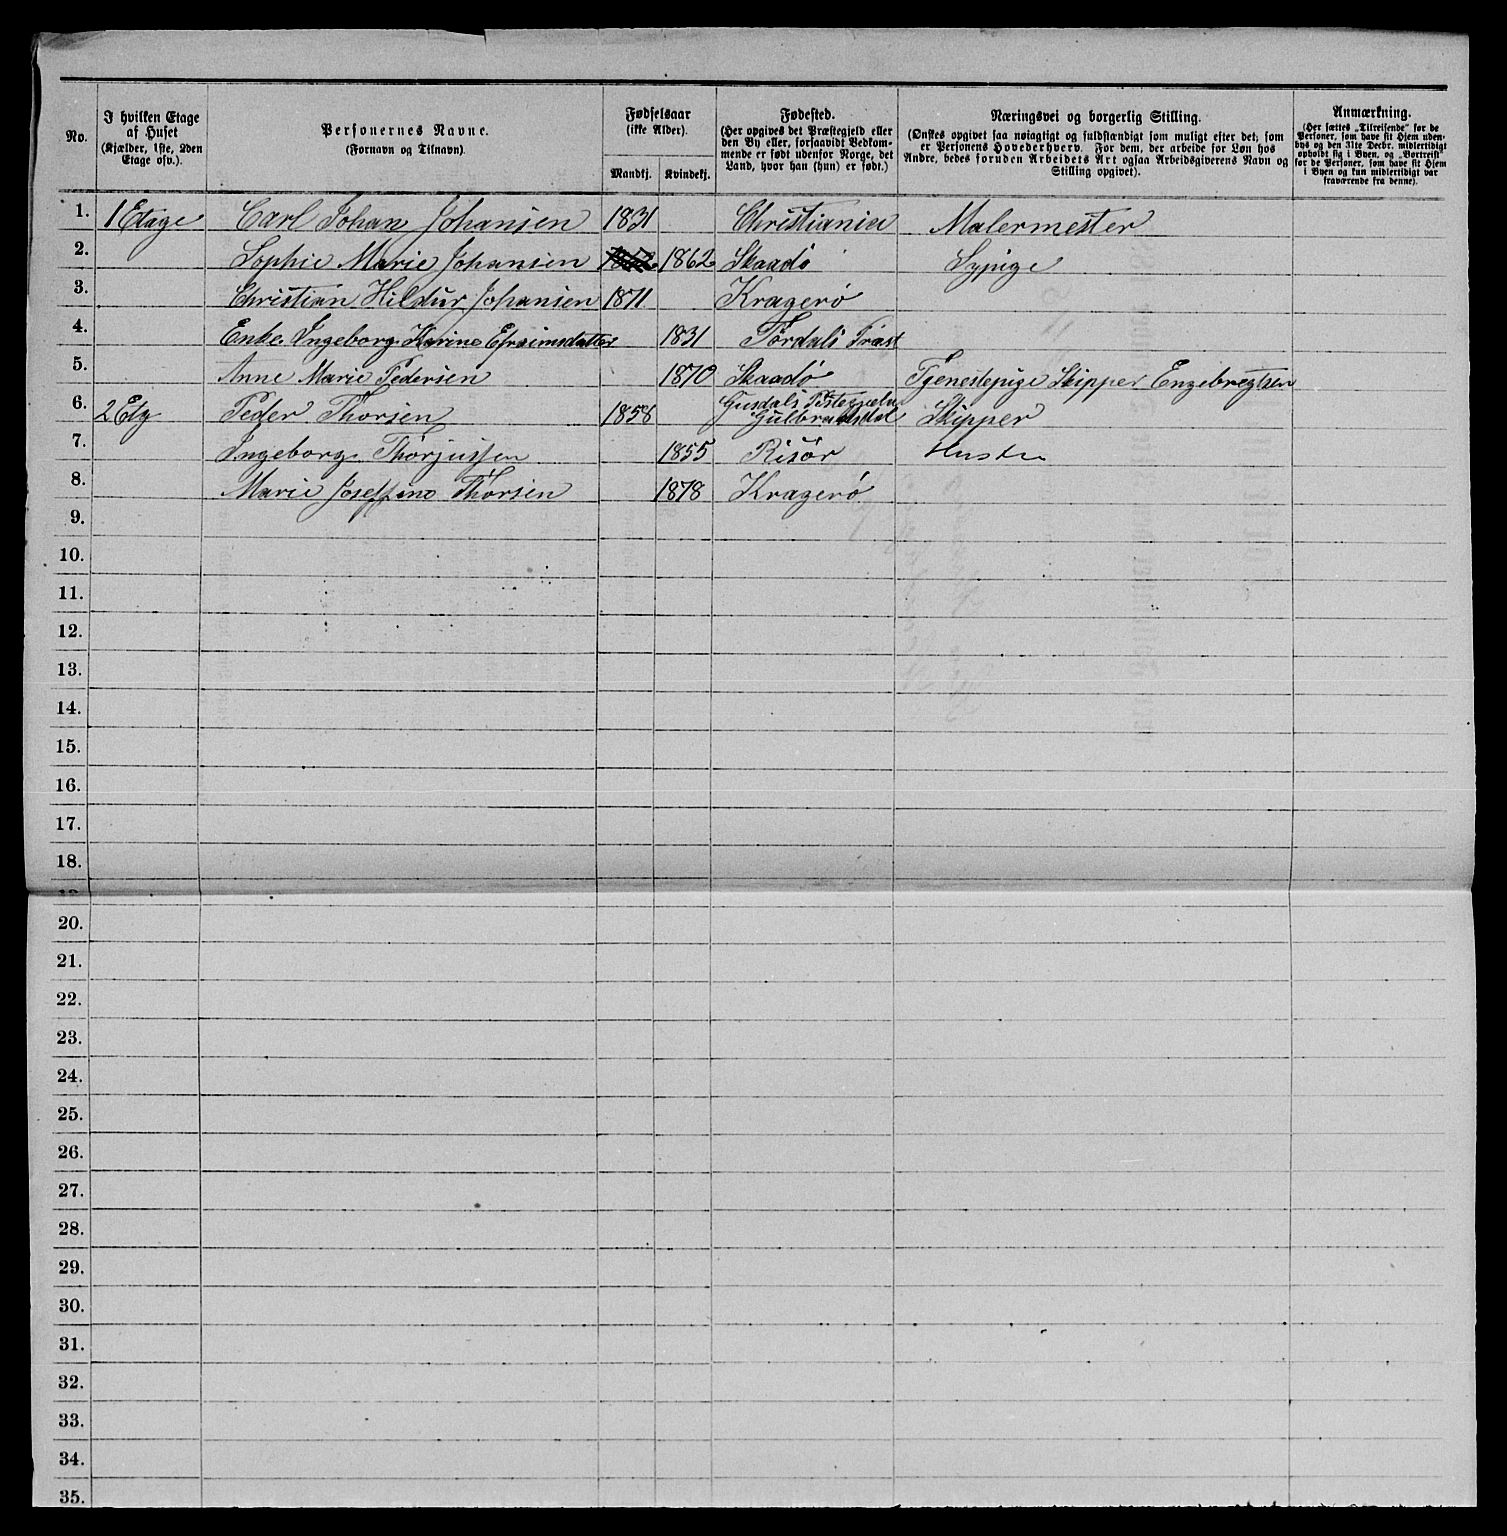 No.
I hvilken Etage af Huset (Kjælder, 1ste, 2den Etage osv.).
Personernes Navne. (Fornavn og Tilnavn).
Fødselsaar (ikke Alder).
Mandkj. Kvindekj.
Fødested. (Her opgives det Præstegjeld eller den By eller, forsaavidt Vedkommende er født udenfor Norge, det Land, hvor han (hun) er født.)
Næringsvei og borgerlig Stilling. (Ønskes opgivet saa nøiagtigt og fuldstændigt som muligt efter det, som er Personens Hovederhverv. For dem, der arbeide for Løn hos Andre, bedes foruden Arbeidets Art ogsaa Arbeidsgiverens Navn og Stilling opgivet).
Anmærkning. (Her sættes „Tilreisende" for de Personer, som have sit Hjem udenbys og den 31te Decbr. midlertidigt opholdt sig i Byen, og „Bortreist" for de Personer, som have sit Hjem i Byen og kun midlertidigt var fraværende fra denne).
1. 1 Etage Carl Johan Johansen 1831 Christiania Malermester
2. Sophie Marie Johansen 1862 Skaadø Sypige
3. Christian Hildur Johansen 1871 Kragerø
4. Enke Ingeborg Karine Efraimsdatter 1831 Tørdals Præst
5. Anne Marie Pedersen 1870 Skaadø Tjenestepige Skipper Engebregtsen
6. 2 Etg Peder Thorsen 1858 Gusdals Gulbrandsdal Skipper
7. Ingeborg Thorjussen 1855 Risør Hustru
8. Marie Joseffine Thorsen 1878 Kragerø
9.
10.
11.
12.
13.
14.
15.
16.
17.
18.
19.
20.
21.
22.
23.
24.
25.
26.
27.
28.
29.
30.
31.
32.
33.
34.
35.